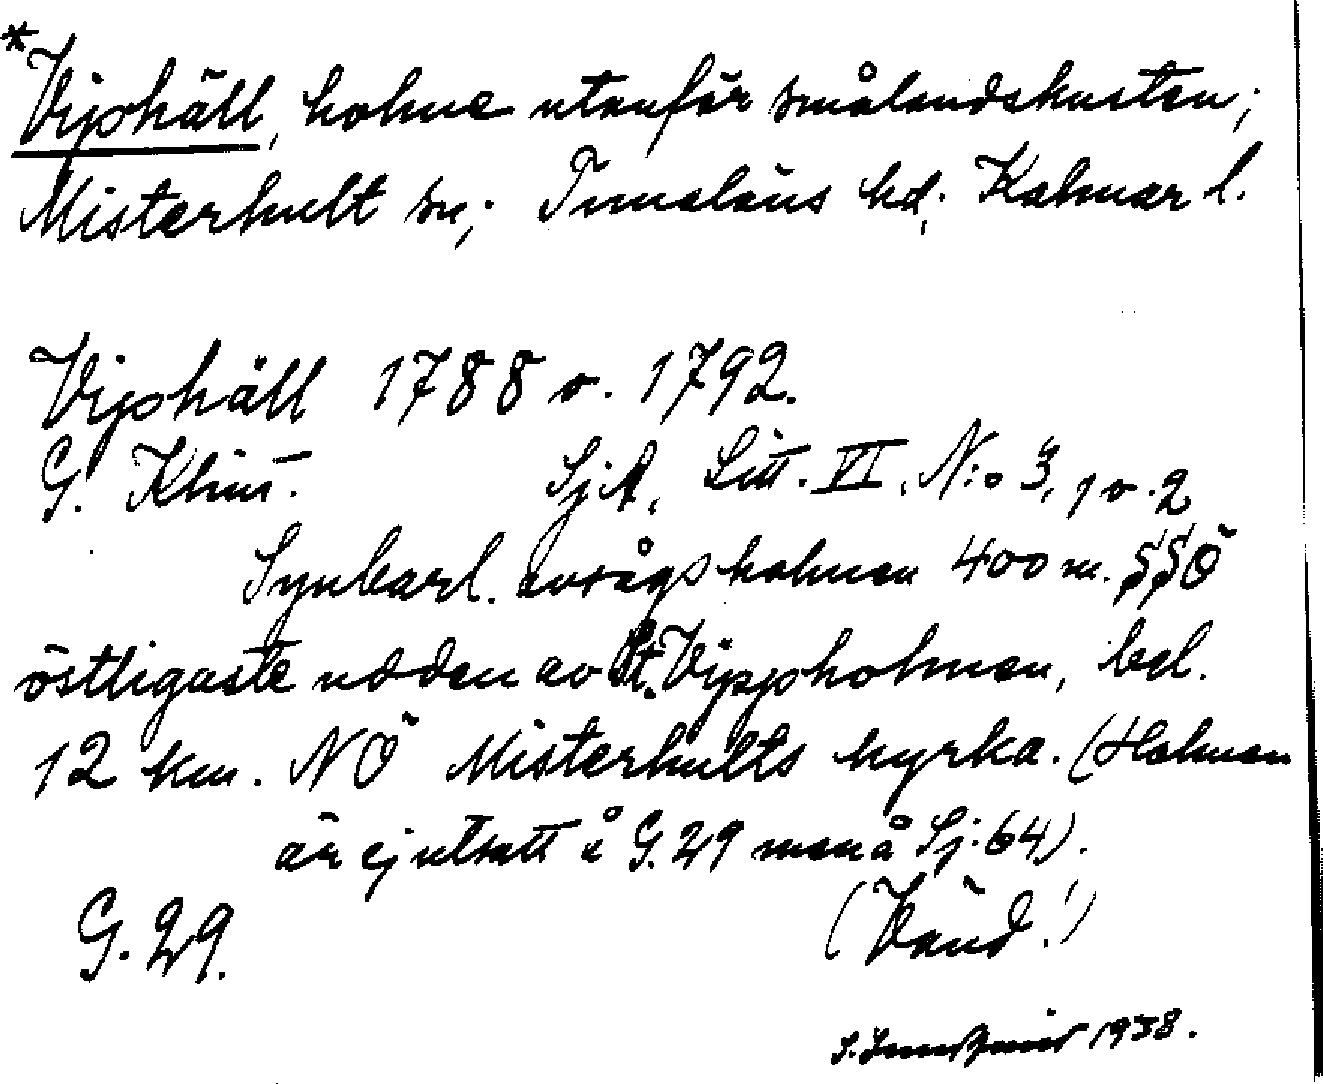 *Viphäll, holme utanför smålandskusten;
Misterhult sn; Tunaläns hd; Kalmar l.
Viphäll 1788 o. 1792.
G. Klint. SjA, Litt. VI, N:o 3, 1 o. 2
Synbarl. avsågs holmen 400 m. SSÖ
östligaste udden av St. Vippholmen, bel.
12 km. NÖ Misterhults kyrka. (Holmen
är ej utsatt å G. 29 men å Sj: 64).
G. 29. (Vänd!)
1938.